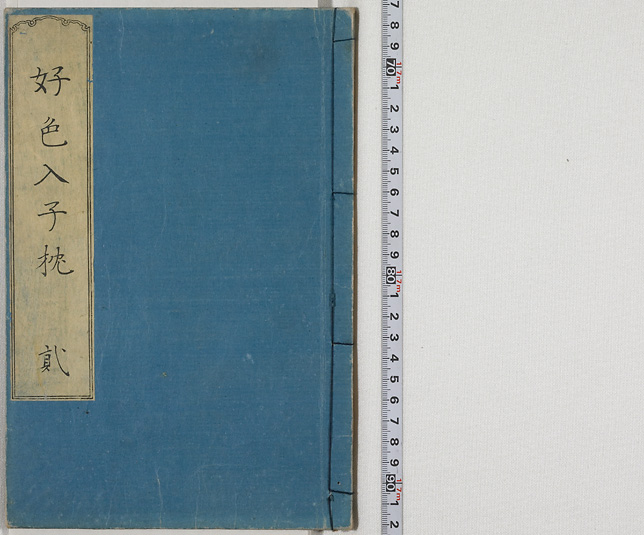 好色入子枕 貳
7
8
9
70 17m
1
2
3
4
5
6
7
8
9
80 17m
1
2
3
4
5
6
7
8
9
90 17m
1
2